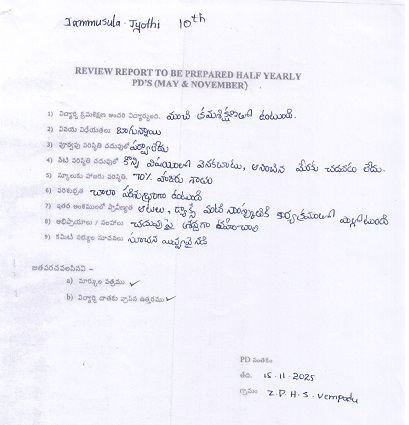 Jammusula - Jyothi 10th
REVIEW REPORT TO BE PREPARED HALF YEARLY
PD'S (MAY & NOVEMBER)
1) విద్యార్థి క్రమశిక్షణ అందరి విద్యార్థులలో. మంచి క్రమశిక్షణగా ఉంటుంది.
2) వినయ విధేయతలు బాగున్నాయి
3) పూర్వపు పరిస్థితి చదువులో పర్వాలేదు
4) నేటి పరిస్థితి చదువులో కొన్ని విషయాలలో వెనకబాటు, ఆశించిన మేరకు చదవడం లేదు.
5) స్కూలుకు హాజరు పరిస్థితి. 70% హాజరు శాతం
6) పరిశుభ్రత చాలా పరిశుభ్రంగా ఉంటుంది
7) ఇతర అంశములలో ప్రావీణ్యత ఆటలు, డ్యాన్స్ వంటి సాంస్కృతిక కార్యక్రమాలలో
8) అభిప్రాయాలు / సలహాలు చదువుపై శ్రద్ధగా
9) కమిటీ సభ్యుల సూచనలు సూచన
జతపరచవలసినవి :-
a) మార్కుల పత్రము ✓
b) విద్యార్థి దాతకు వ్రాసిన ఉత్తరము ✓
PD సంతకం
తేది. 15-11-2025
గ్రామం Z.P.H.S. Vempadu